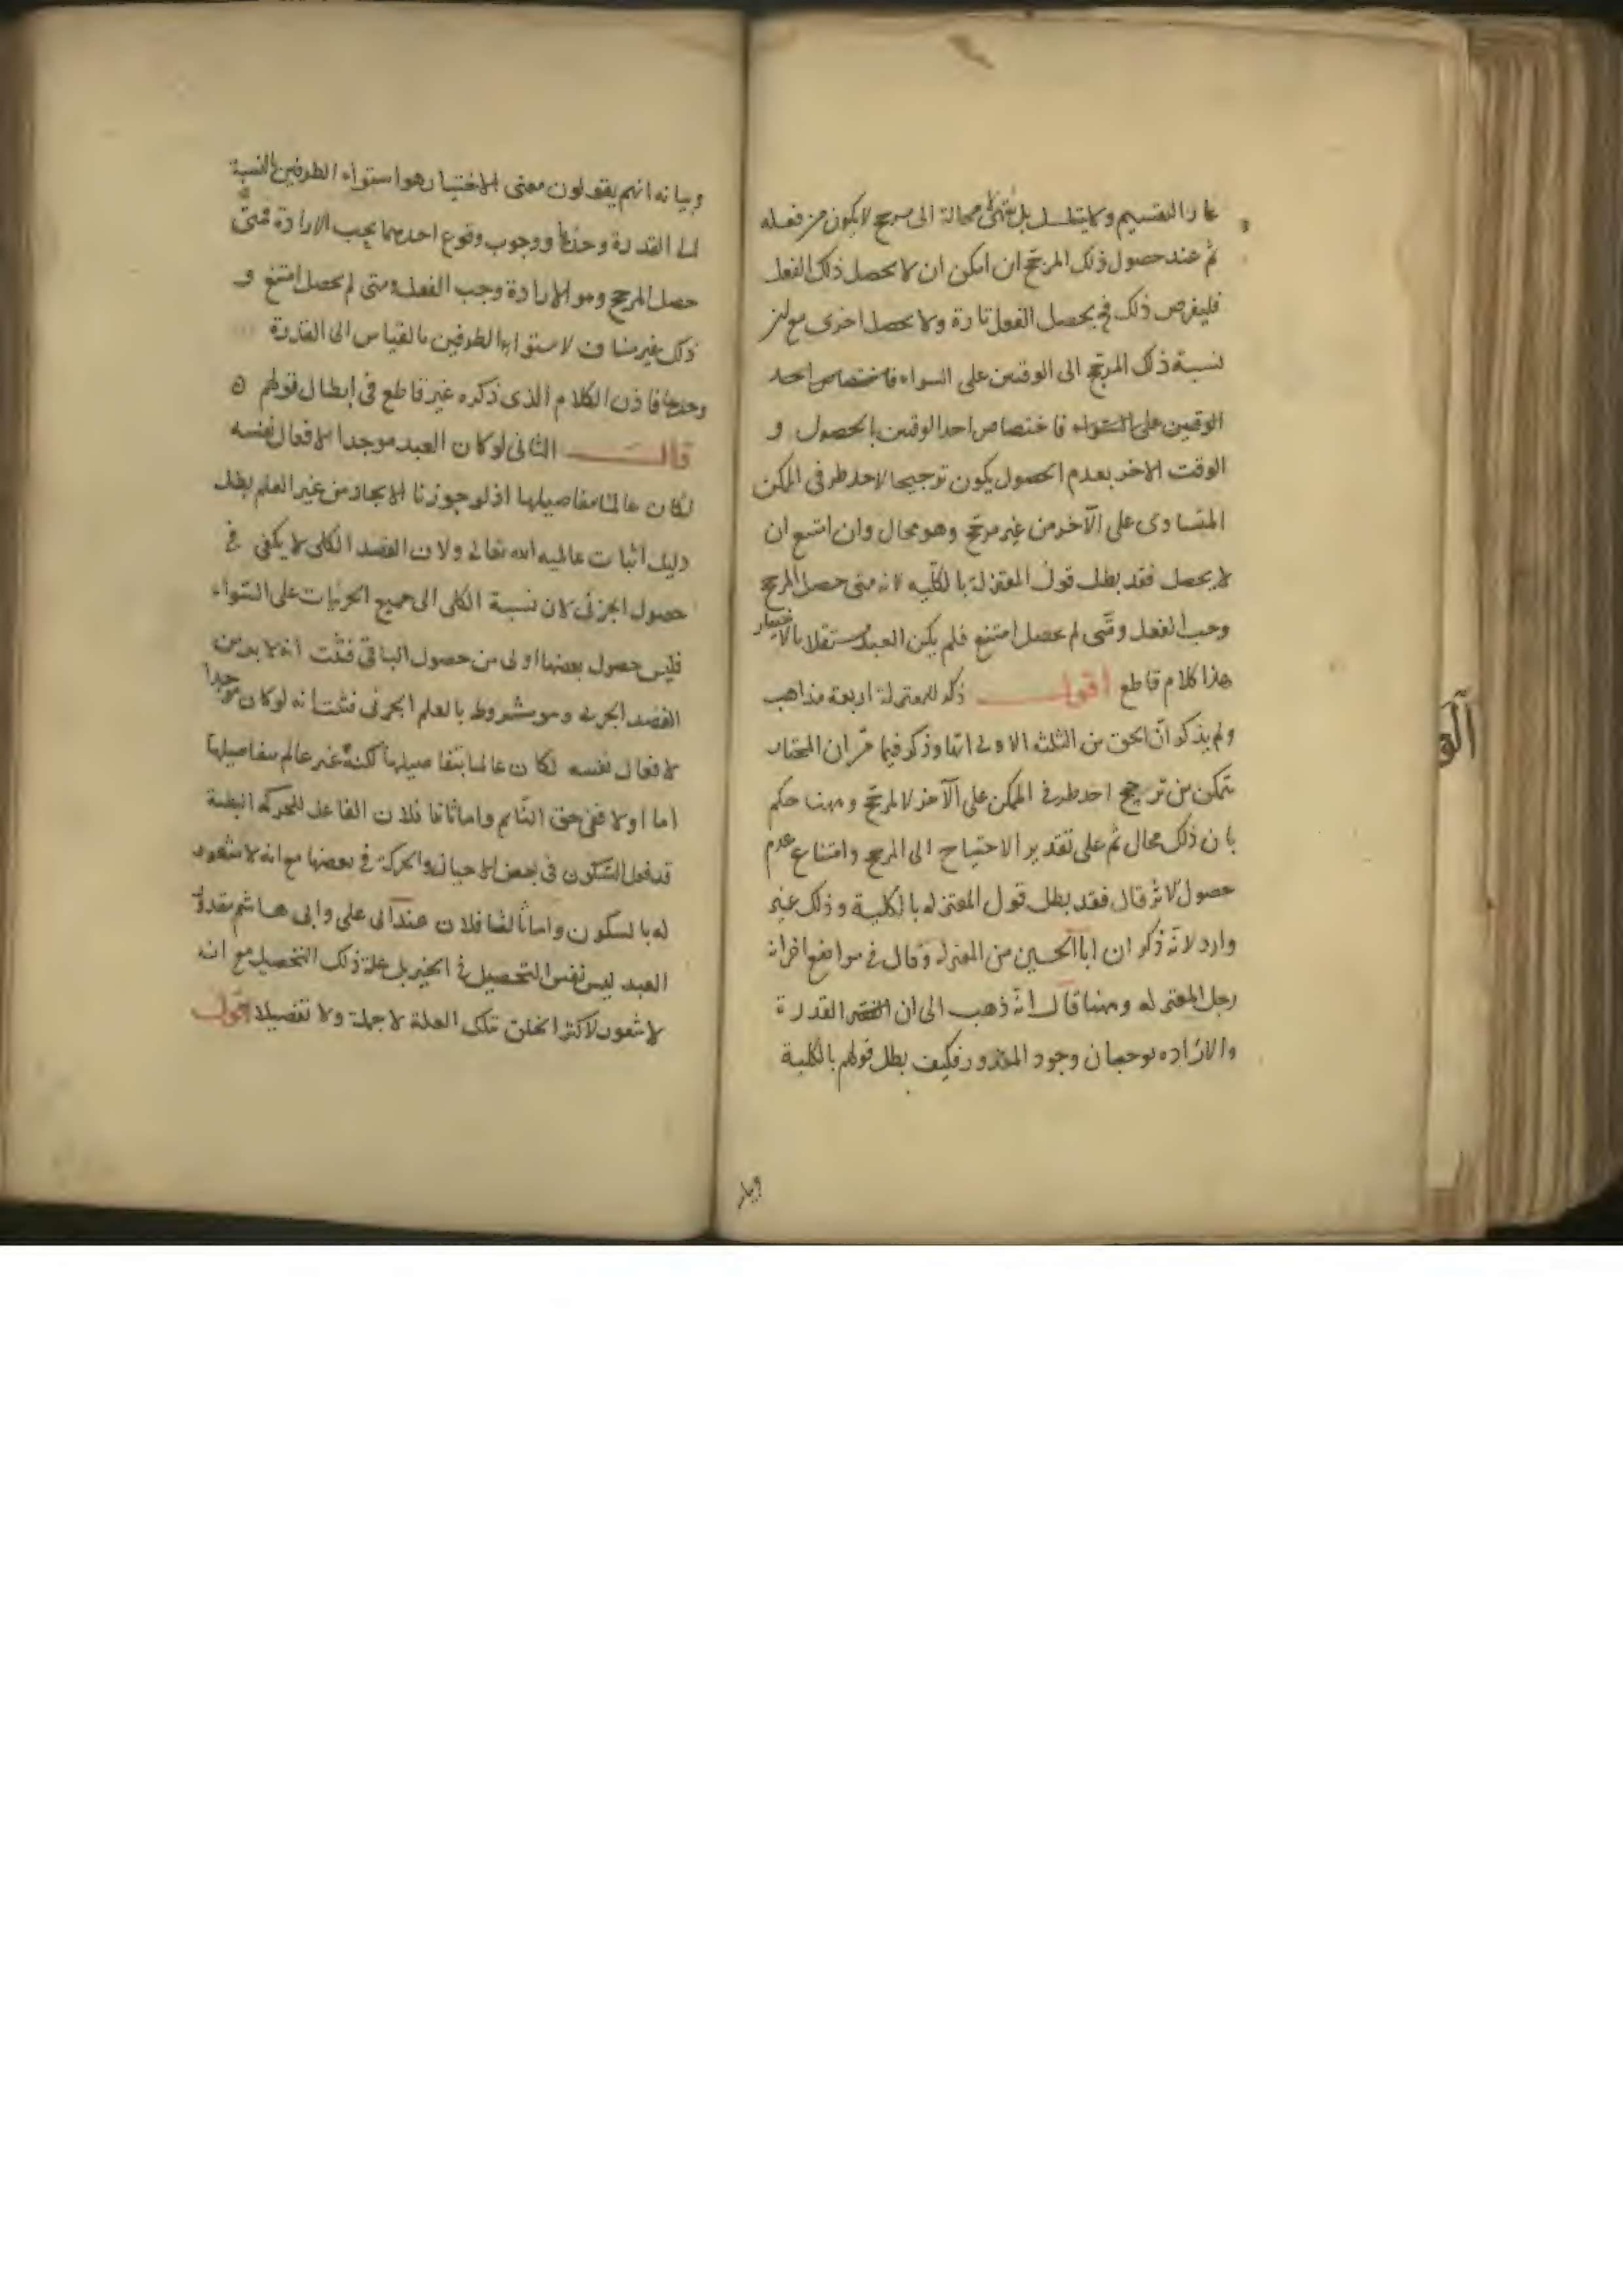 عاد التقسيم ولا يتسلسل بل ينتهى لا محالة الى مرجح لا يكون من فعله
ثم عند حصول ذلك المرجح ان امكن ان لا يحصل ذلك الفعل
فليفرض ذلك فح يحصل الفعل تارة ولا يحصل اخرى مع ان
نسبة ذلك المرجح الى الوقتين على السواء فاختصاص احد
الوقتين على السواء فاختصاص احد الوقتين بالحصول و
الوقت الاخر بعدم الحصول يكون ترجيحا لاحد طرفى الممكن
المتساوى على الآخر من غير مرجح وهو محال وان امتنع ان
لا يحصل فقد بطل قول المعتزلة بالكلّيه لانه متى حصل المرجح
وجب الفعل ومتى لم يحصل امتنع فلم يكن العبد مستقلا بالاختيار
هذا كلام قاطع اقول ذكر للمعتزلة اربعة مذاهب
ولم يذكر انّ الحق من الثلثه الاولى ايّها وذكر فيما مرّ ان المختار
يتمكن من ترجيح احد طرفى الممكن على الآخر لا لمرجّح وههنا حكم
بان ذلك محال ثم على تقدير الاحتياج الى المرجح وامتناع عدم
حصول الاثر قال فقد بطل قول المعتزله بالكلية وذلك غير
وارد لانّه ذكر ان اباالحسين من المعتزله وقال فى مواضع اخر انه
رجل المعتزله وههنا قال انّه ذهب الى ان القدرة
والاراده يوجبان وجود المقدور فكيف بطل قولهم بالكلية
وبيا
وبيانه انهم يقولون معنى الاختيار هو استواء الطرفين بالنسبة
الى القدرة وحدها ووجوب وقوع احدهما بحسب الارادة فمتى
حصل المرجح وهو الارادة وجب الفعل ومتى لم يحصل امتنع و
ذلك غير مناف لاستواء الطرفين بالقياس الى القدرة
وحدها فاذن الكلام الذى ذكره غير قاطع فى ابطال قولهم
قال الثانى لو كان العبد موجدا لافعال نفسه
لكان عالما بتفاصيلها اذ لو جوزنا الايجاد من غير العلم بطل
دليل اثبات عالمية الله تعالى ولان القصد الكلى لا يكفى فى
حصول الجزئى لان نسبة الكلى الى جميع الجزئيات على السّواء
فليس حصول بعضها اولى من حصول الباقى فثبت انه لا بد من
القصد الجزئى وهو مشروط بالعلم الجزئى فثبت انه لو كان موجدا
لافعال نفسه لكان عالما بتفاصيلها لكنه غير عالم بتفاصيلها
اما اولا ففى حق النّائم واما ثانيا فلان الفاعل للحركه البطيئة
قد فعل السّكون فى بعض الاحيان والحركة فى بعضها مع انه لا شعور
له بالسكون واما ثالثا فلان عند ابى على وابى هاشم مقدور
العبد ليس نفس التحصيل فى الحيز بل علة ذلك التحصيل مع انه
لا شعور لاكثر الخلق بتلك العلة لا جملة ولا تفصيلا اقول